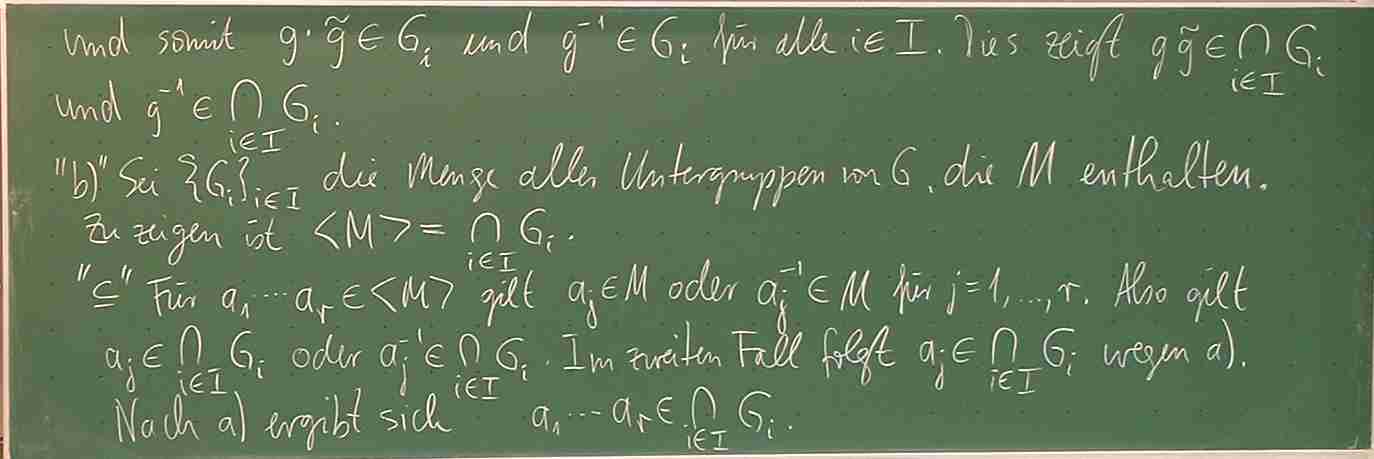 und somit g·g̃ ∈ G_i und g⁻¹ ∈ G_i für alle i ∈ I. Dies zeigt g g̃ ∈ ⋂_{i∈I} G_i
und g⁻¹ ∈ ⋂_{i∈I} G_i.
"b)" Sei {G_i}_{i∈I} die Menge aller Untergruppen von G, die M enthalten.
Zu zeigen ist <M> = ⋂_{i∈I} G_i.
"⊆" Für a₁ ··· a_r ∈ <M> gilt a_j ∈ M oder a_j⁻¹ ∈ M für j = 1, ..., r. Also gilt
a_j ∈ ⋂_{i∈I} G_i oder a_j⁻¹ ∈ ⋂_{i∈I} G_i. Im zweiten Fall folgt a_j ∈ ⋂_{i∈I} G_i wegen a).
Nach a) ergibt sich a₁ ··· a_r ∈ ⋂_{i∈I} G_i.